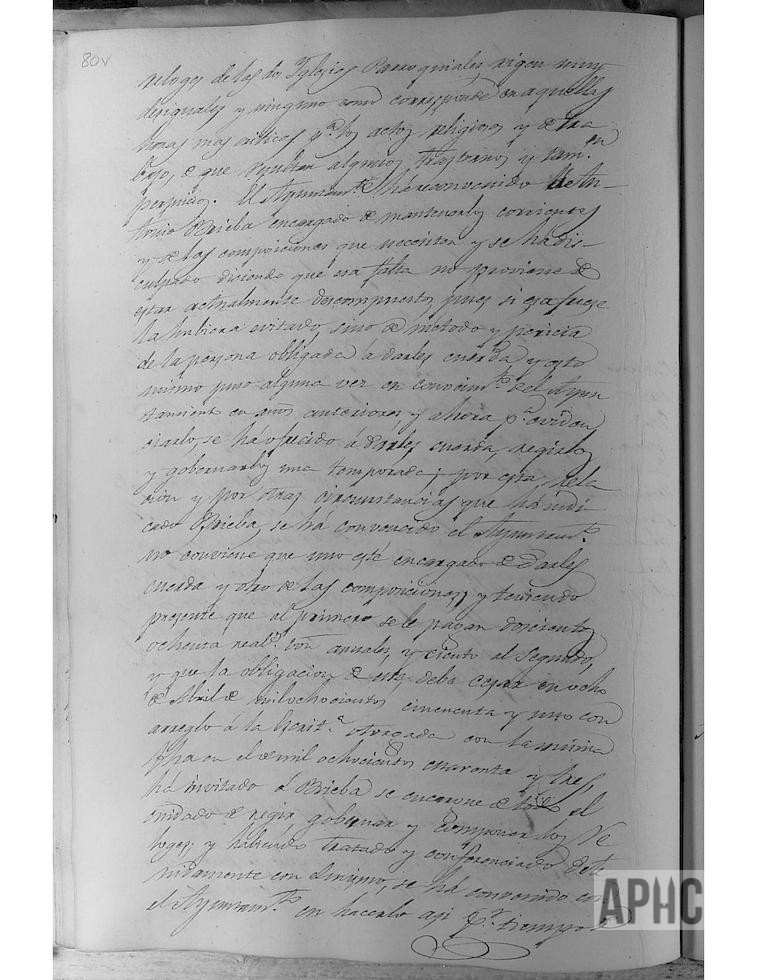 80v
reloges de las dos Yglesias Parroquiales rigen muy
desiguales y ninguno como corresponde en aquellas
horas mas criticas p.ª los actos religiosos y de tra
bajo, de que resultan algunos trastornos y tam.en
perjuicios. El Ayuntam.to ha reconvenido á An-
tonio Brieba encargado de mantenerlos corrientes
y de las composiciones que necesiten y se ha dis-
culpado diciendo que esa falta no proviene de
estar actualmente descompuestos pues si esa fuese
la hubiera evitado, sino de metodo y pericia
de la persona obligada á darles cuerda y esto
mismo puso alguna vez en conocim.to del Ayun
tamiento en años anteriores y ahora p.ª eviden
ciarlo, se há ofrecido á darles cuerda, regirlos
y gobernarlos una temporada; por esta rela
cion y por otras circunstancias que há indi
cado Brieba, se há convencido el Ayuntam.to
no conviene que uno esté encargado de darles
cuerda y otro de las composiciones, y teniendo
presente que al primero se le pagan doscientos
ochenta real.s von anuales, y ciento al segundo,
y que la obligacion de este, deba cesar en ocho
de Abril de milochocientos cincuenta y uno con
arreglo á la Escrit.ª otorgada con la misma
fha en el de mil ochocientos cuarenta y tres,
há invitado á Brieba se encargue de todo el
cuidado de regir, gobernar y componer los Re
loges; y habiendo tratado y conferenciado dete
nidamente con el mismo, se há convenido con
el Ayuntam.to en hacerlo asi p.r tiempo de
APHC